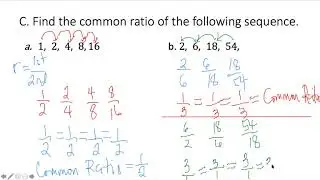 C. Find the common ratio of the following sequence.
a. 1, 2, 4, 8, 16
b. 2, 6, 18, 54,
r = 1st/2nd
1/2 2/4 4/8 8/16
1/2 = 1/2 = 1/2 = 1/2
Common Ratio = 1/2
2/6 6/18 18/54
1/3 = 1/3 = 1/3 = Common Ratio
6/2 18/6 54/18
3/1 = 3/1 = 3/1 = 3